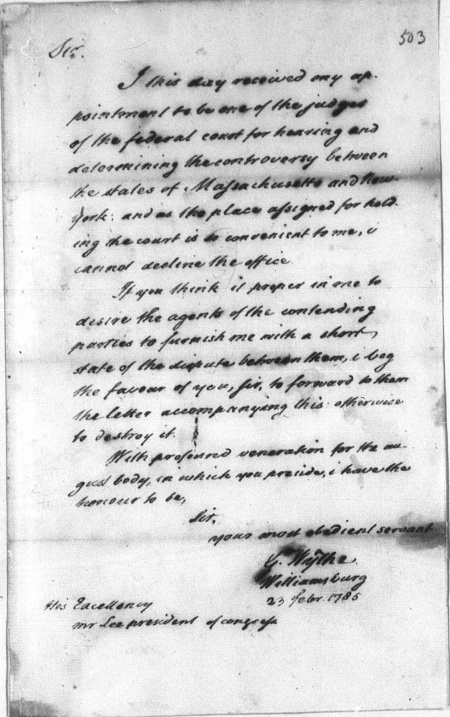 503
Sir.
I this day received my ap-
pointment to be one of the judges
of the federal court for hearing and
determining the controversy between
the states of Massachusetts and New-
york: and as the place assigned for hold-
ing the court is so convenient to me, i
cannot decline the office
If you think it proper in me to
desire the agents of the contending
parties to furnish me with a short
state of the dispute between them, i beg
the favour of you, sir, to forward to them
the letter accompanying this: otherwise
to destroy it.
With profound veneration for the au-
gust body, in which you preside, i have the
honour to be,
Sir,
your most obedient servant
G. Wythe
Williamsburg
23 febr. 1785
His Excellency
mr Lee president of congress